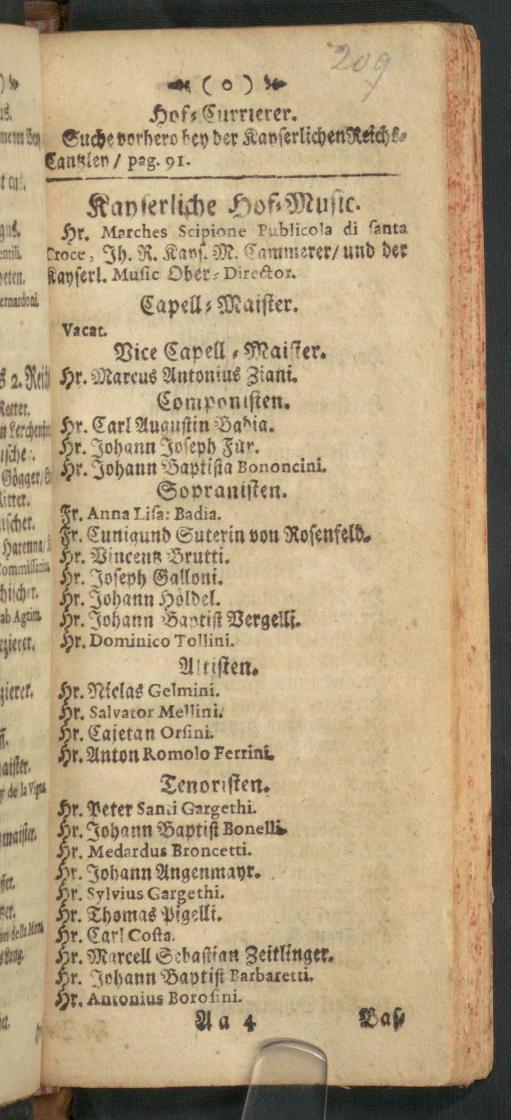 209
( o )
Hof-Currierer.
Suche vorhero bey der Kayserlichen Reichs-
Cantzley / pag. 91.
Kayserliche Hof-Music.
Hr. Marches Scipione Publicola di santa
Croce, Ih. R. Kays. M. Cammerer / und der
Kayserl. Music Ober-Director.
Capell-Maister.
Vacat.
Vice Capell-Maister.
Hr. Marcus Antonius Ziani.
Componisten.
Hr. Carl Augustin Badia.
Hr. Johann Joseph Fux.
Hr. Johann Baptista Bononcini.
Sopranisten.
Fr. Anna Lisa: Badia.
Fr. Cunigund Suterin von Rosenfeld.
Hr. Vincentz Brutti.
Hr. Joseph Galloni.
Hr. Johann Höldel.
Hr. Johann Baptist Vergelli.
Hr. Dominico Tollini.
Altisten.
Hr. Niclas Gelmini.
Hr. Salvator Mellini.
Hr. Cajetan Orsini.
Hr. Anton Romolo Ferrini.
Tenoristen.
Hr. Peter Santi Gargethi.
Hr. Johann Baptist Bonelli.
Hr. Medardus Broncetti.
Hr. Johann Angenmayr.
Hr. Sylvius Gargethi.
Hr. Thomas Pigelli.
Hr. Carl Costa.
Hr. Marcell Sebastian Zeitlinger.
Hr. Johann Baptist Barbaretti.
Hr. Antonius Borosini.
Aa 4 Bas-